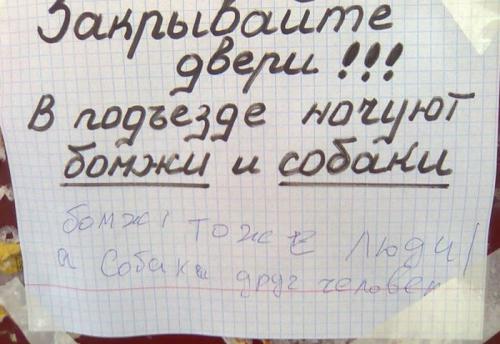 Закрывайте
двери !!!
В подъезде ночуют
бомжи и собаки
бомжі тоже люди,
а собаки друг человек